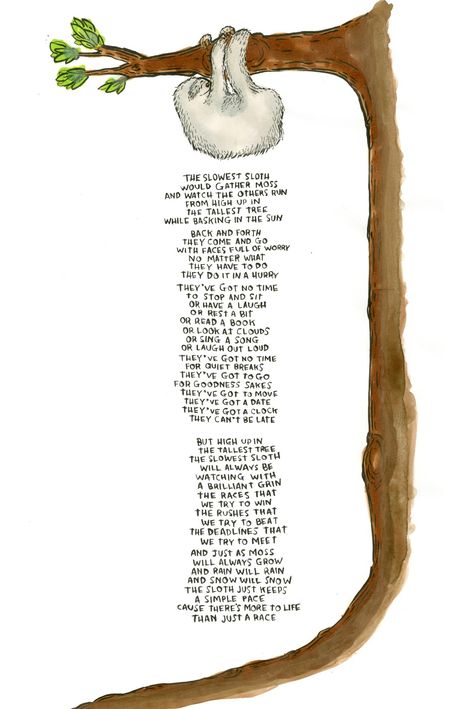 THE SLOWEST SLOTH
WOULD GATHER MOSS
AND WATCH THE OTHERS RUN
FROM HIGH UP IN
THE TALLEST TREE
WHILE BASKING IN THE SUN
BACK AND FORTH
THEY COME AND GO
WITH FACES FULL OF WORRY
NO MATTER WHAT
THEY HAVE TO DO
THEY DO IT IN A HURRY
THEY'VE GOT NO TIME
TO STOP AND SIT
OR HAVE A LAUGH
OR REST A BIT
OR READ A BOOK
OR LOOK AT CLOUDS
OR SING A SONG
OR LAUGH OUT LOUD
THEY'VE GOT NO TIME
FOR QUIET BREAKS
THEY'VE GOT TO GO
FOR GOODNESS SAKES
THEY'VE GOT TO MOVE
THEY'VE GOT A DATE
THEY'VE GOT A CLOCK
THEY CAN'T BE LATE
BUT HIGH UP IN
THE TALLEST TREE
THE SLOWEST SLOTH
WILL ALWAYS BE
WATCHING WITH
A BRILLIANT GRIN
THE RACES THAT
WE TRY TO WIN
THE RUSHES THAT
WE TRY TO BEAT
THE DEADLINES THAT
WE TRY TO MEET
AND JUST AS MOSS
WILL ALWAYS GROW
AND RAIN WILL RAIN
AND SNOW WILL SNOW
THE SLOTH JUST KEEPS
A SIMPLE PACE
CAUSE THERE'S MORE TO LIFE
THAN JUST A RACE